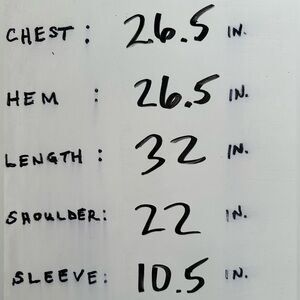 CHEST: 26.5 IN.
HEM : 26.5 IN.
LENGTH: 32 IN.
SHOULDER: 22 IN.
SLEEVE: 10.5 IN.